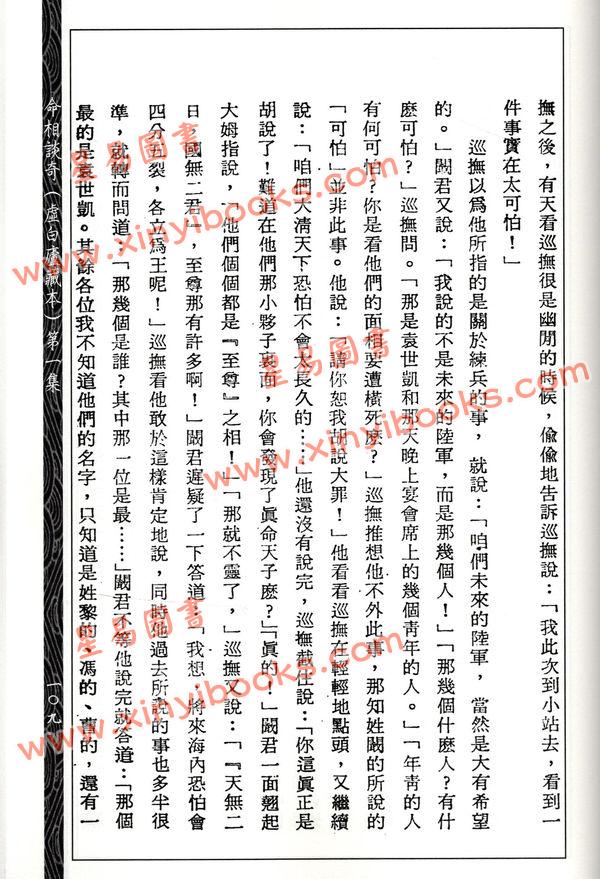 撫之後，有天看巡撫很是幽閒的時候，偷偷地告訴巡撫說：「我此次到小站去，看到一
件事實在太可怕！」
巡撫以為他所指的是關於練兵的事，就說：「咱們未來的陸軍，當然是大有希望
的。」闞君又說：「我說的不是未來的陸軍，而是那幾個人！」「那幾個什麼人？有什
麼可怕？」巡撫問。「那是袁世凱和那天晚上宴會席上的幾個青年的人。」「年青的人
有何可怕？你是看他們的面相要遭橫死麼？」巡撫推想他不外此事，那知姓闞的所說的
「可怕」並非此事。他說：「請你恕我胡說大罪！」他看看巡撫在輕輕地點頭，又繼續
說：「咱們大清天下恐怕不會太長久的……」他還沒有說完，巡撫截住說：「你這眞正是
胡說了！難道在他們那小夥子裏面，你會發現了眞命天子麼？」「眞的！」闞君一面翹起
大姆指說，「他們個個都是『至尊』之相！」「那就不靈了，」巡撫又說：「『天無二
日，國無二君』，至尊那有許多啊！」闞君遲疑了一下答道：「我想，將來海內恐怕會
四分五裂，各立為王呢！」巡撫看他敢於這樣肯定地說，同時他過去所說的事也多半很
準，就轉而問道：「那幾個是誰？其中那一位是最……」闞君不等他說完就答道：「那個
最的是袁世凱。其餘各位我不知道他們的名字，只知道是姓黎的、馮的、曹的，還有一
命相談奇（虛白廬藏本）第一集
一〇九
星易圖書
www.xinyibooks.com
星易圖書
www.xinyibooks.com
星易圖書
www.xinyibooks.com